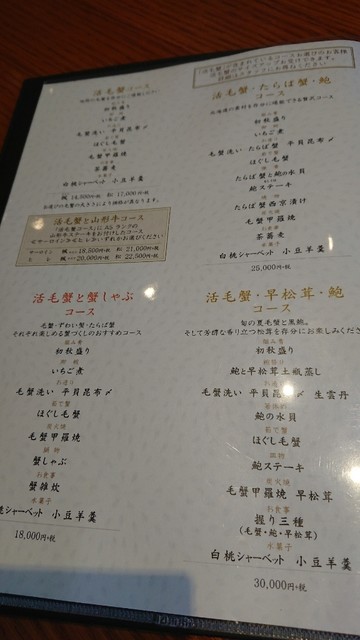 活毛蟹コース
初秋盛り
いちご煮
毛蟹洗い 平貝昆布〆
ほぐし毛蟹
毛蟹甲羅焼
茶蕎麦
白桃シャーベット 小豆羊羹
活毛蟹と山形牛コース
サーロイン
18,500円+税
21,000円+税
ヒレ
20,000円+税
22,500円+税
活毛蟹と蟹しゃぶ
コース
毛蟹・ずわい蟹・たらば蟹
それぞれ楽しめる蟹づくしのおすすめコース
初秋盛り
いちご煮
お造り
毛蟹洗い 平貝昆布〆
茹で蟹
ほぐし毛蟹
炭火焼
毛蟹甲羅焼
鍋物
蟹しゃぶ
お食事
蟹雑炊
水菓子
白桃シャーベット 小豆羊羹
18,000円+税
活毛蟹・たらば蟹・鮑
コース
初秋盛り
いちご煮
毛蟹洗い たらば蟹 平貝昆布〆
ほぐし毛蟹
たらば蟹と鮑の水貝
鮑ステーキ
たらば蟹西京漬け
毛蟹甲羅焼
茶蕎麦
白桃シャーベット 小豆羊羹
25,000円+税
活毛蟹・早松茸・鮑
コース
旬の夏毛蟹と黒鮑。
そして芳醇な香り立つ松茸を存分にお楽しみくださ
初秋盛り
鮑と早松茸土瓶蒸し
お造り
毛蟹洗い 平貝昆布〆 生雲丹
鮑の水貝
茹で蟹
ほぐし毛蟹
鮑ステーキ
炭火焼
毛蟹甲羅焼 早松茸
お食事
握り三種
(毛蟹・鮑・早松茸)
水菓子
白桃シャーベット 小豆羊羹
30,000円+税